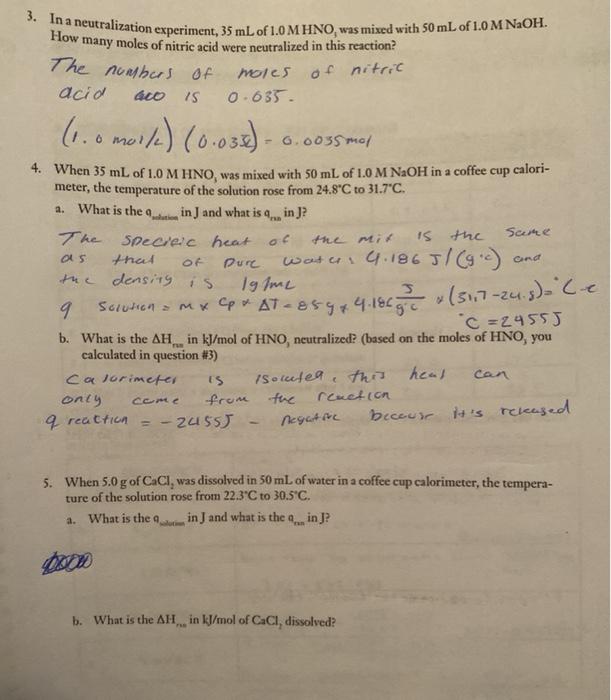 3. In a neutralization experiment, 35 mL of 1.0 M HNO₃ was mixed with 50 mL of 1.0 M NaOH.
How many moles of nitric acid were neutralized in this reaction?
The numbers of moles of nitric
acid is 0.035.
(1.0 mol/L) (0.035L) = 0.0035 mol
4. When 35 mL of 1.0 M HNO₃ was mixed with 50 mL of 1.0 M NaOH in a coffee cup calori-
meter, the temperature of the solution rose from 24.8°C to 31.7°C.
a. What is the q solution in J and what is q rxn in J?
The specific heat of the mix is the same
as that of pure water: 4.186 J/(g·c) and
the density is 1g/mL
q solution = m x Cp x ΔT = 85g x 4.186 J/g°c x (31,7-24.8)=
°C = 2455J
b. What is the ΔH rxn in kJ/mol of HNO₃ neutralized? (based on the moles of HNO₃ you
calculated in question #3)
Calorimeter is isolated, this heat can
only come from the reaction
q reaction = -2455J - negative because it's released
5. When 5.0 g of CaCl₂ was dissolved in 50 mL of water in a coffee cup calorimeter, the tempera-
ture of the solution rose from 22.3°C to 30.5°C.
a. What is the q solution in J and what is the q rxn in J?
b. What is the ΔH rxn in kJ/mol of CaCl₂ dissolved?